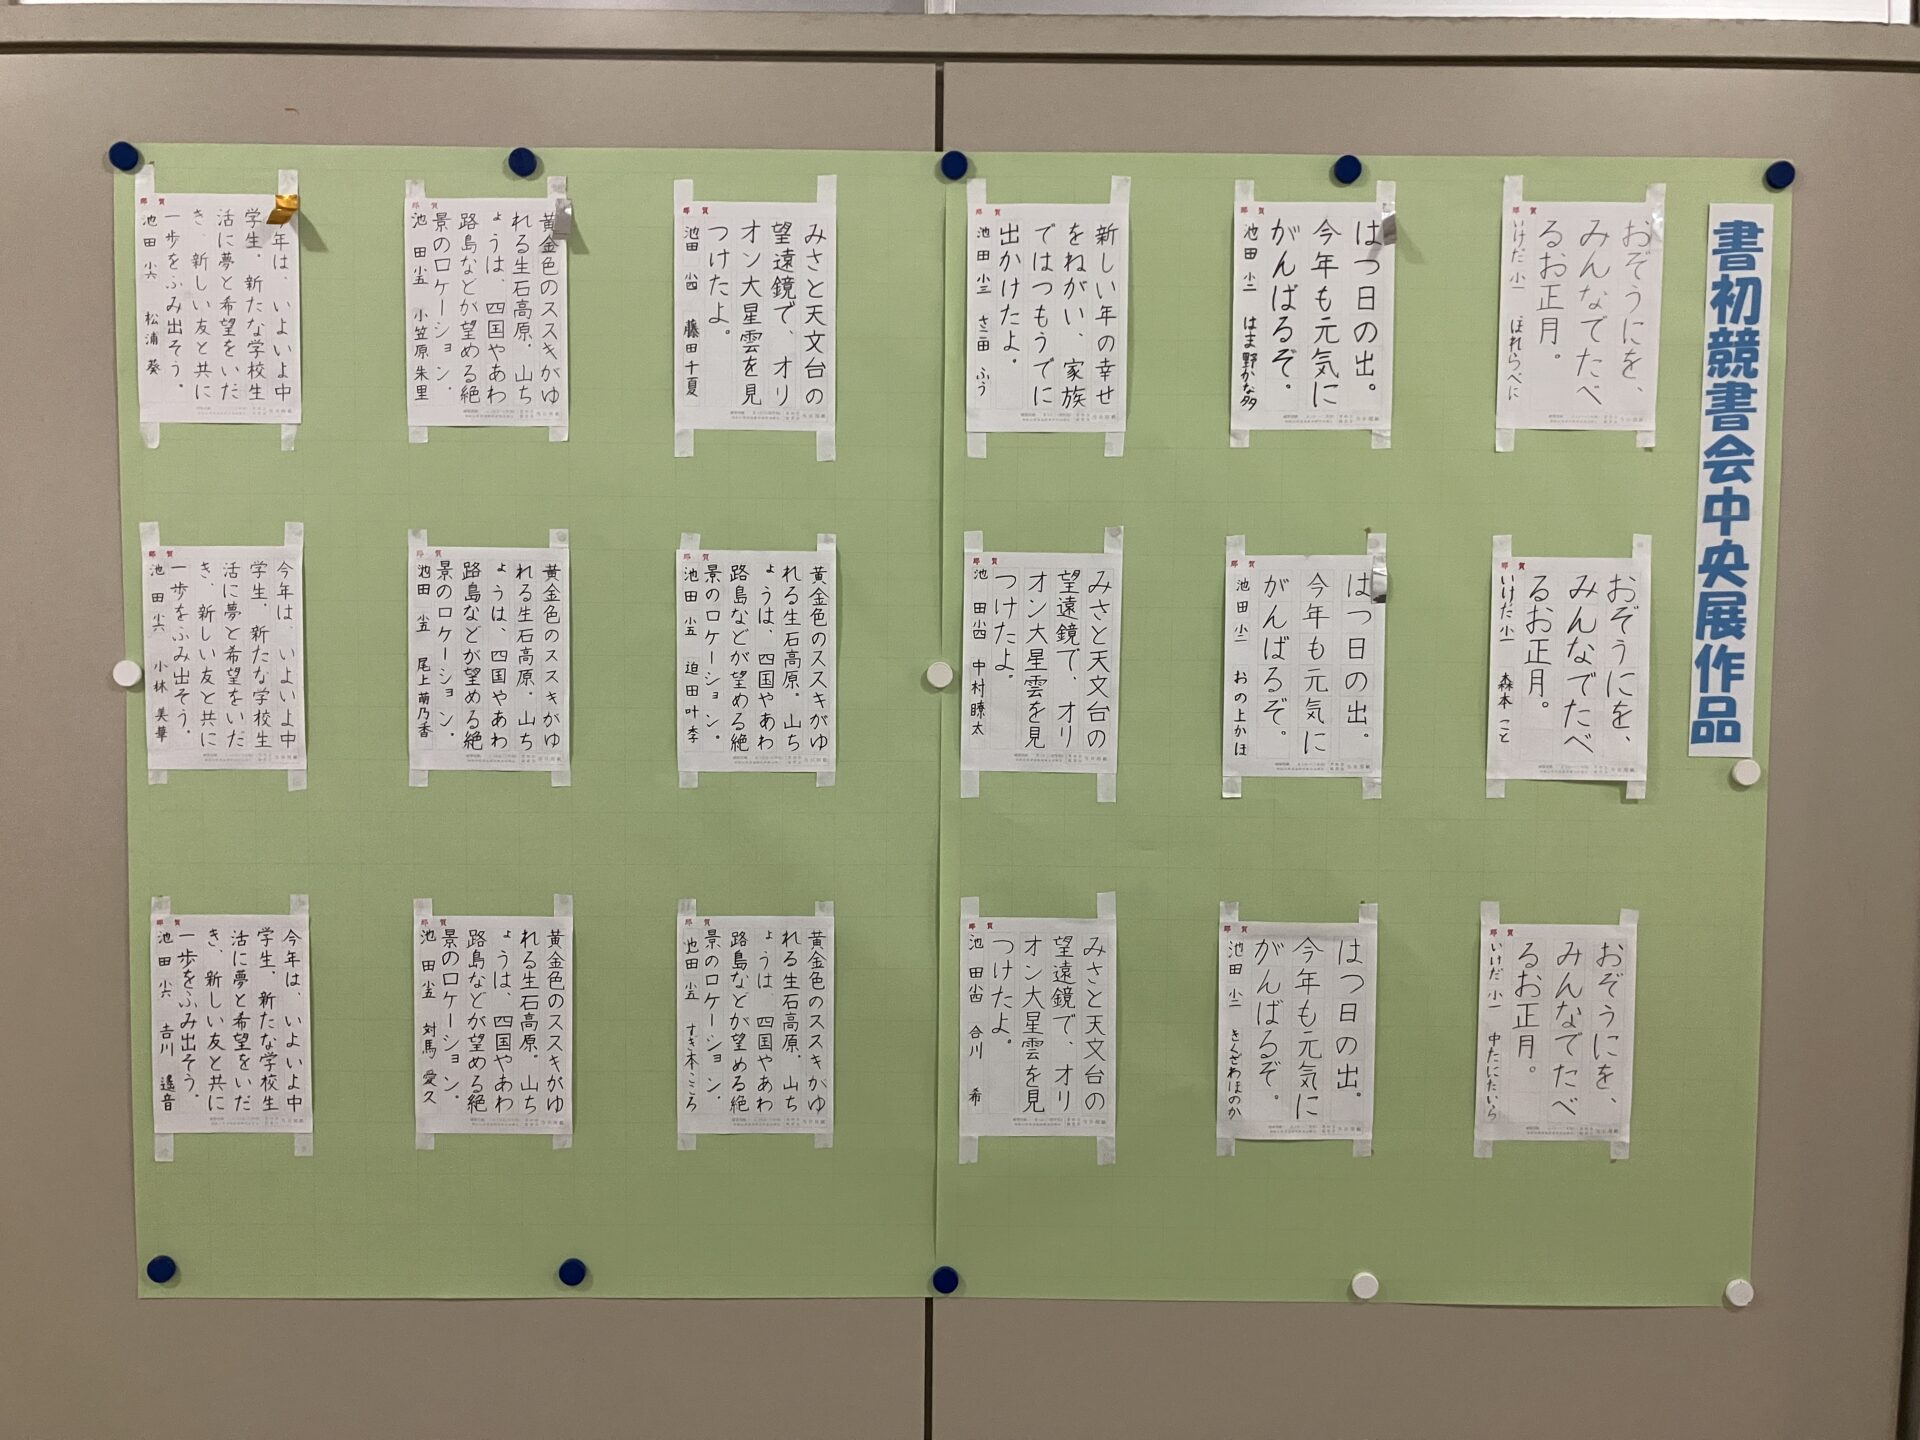 書初競書会中央展作品
おぞうにを、
みんなでたべ
るお正月。
いけだ 小一
おぞうにを、
みんなでたべ
るお正月。
いけだ 小一 森本 こと
おぞうにを、
みんなでたべ
るお正月。
いけだ 小一 中たにたいら
はつ日の出。
今年も元気に
がんばるぞ。
池田 小二 はま野かな多
はつ日の出。
今年も元気に
がんばるぞ。
池田 小二 おの上かほ
はつ日の出。
今年も元気に
がんばるぞ。
池田 小二 きんざわほのか
新しい年の幸せ
をねがい、家族
ではつもうでに
出かけたよ。
池田 小三 ふう
みさと天文台の
望遠鏡で、オリ
オン大星雲を見
つけたよ。
池田 小四 中村瞭太
みさと天文台の
望遠鏡で、オリ
オン大星雲を見
つけたよ。
池田 小四 合川 希
みさと天文台の
望遠鏡で、オリ
オン大星雲を見
つけたよ。
池田 小四 藤田千夏
黄金色のススキがゆ
れる生石高原。山ち
ょうは、四国やあわ
路島などが望める絶
景のロケーション。
池田 小五 迫田叶李
黄金色のススキがゆ
れる生石高原。山ち
ょうは、四国やあわ
路島などが望める絶
景のロケーション。
池田 小五 すぎ本こころ
黄金色のススキがゆ
れる生石高原。山ち
ょうは、四国やあわ
路島などが望める絶
景のロケーション。
池田 小五 小笠原朱里
黄金色のススキがゆ
れる生石高原。山ち
ょうは、四国やあわ
路島などが望める絶
景のロケーション。
池田 小五 尾上萌乃香
黄金色のススキがゆ
れる生石高原。山ち
ょうは、四国やあわ
路島などが望める絶
景のロケーション。
池田 小五 対馬 愛久
年は、いよいよ中
学生。新たな学校生
活に夢と希望をいだ
き、新しい友と共に
一歩をふみ出そう。
池田 小六 松浦 葵
今年は、いよいよ中
学生。新たな学校生
活に夢と希望をいだ
き、新しい友と共に
一歩をふみ出そう。
池田 小六 小林 美華
今年は、いよいよ中
学生。新たな学校生
活に夢と希望をいだ
き、新しい友と共に
一歩をふみ出そう。
池田 小六 吉川 遙音